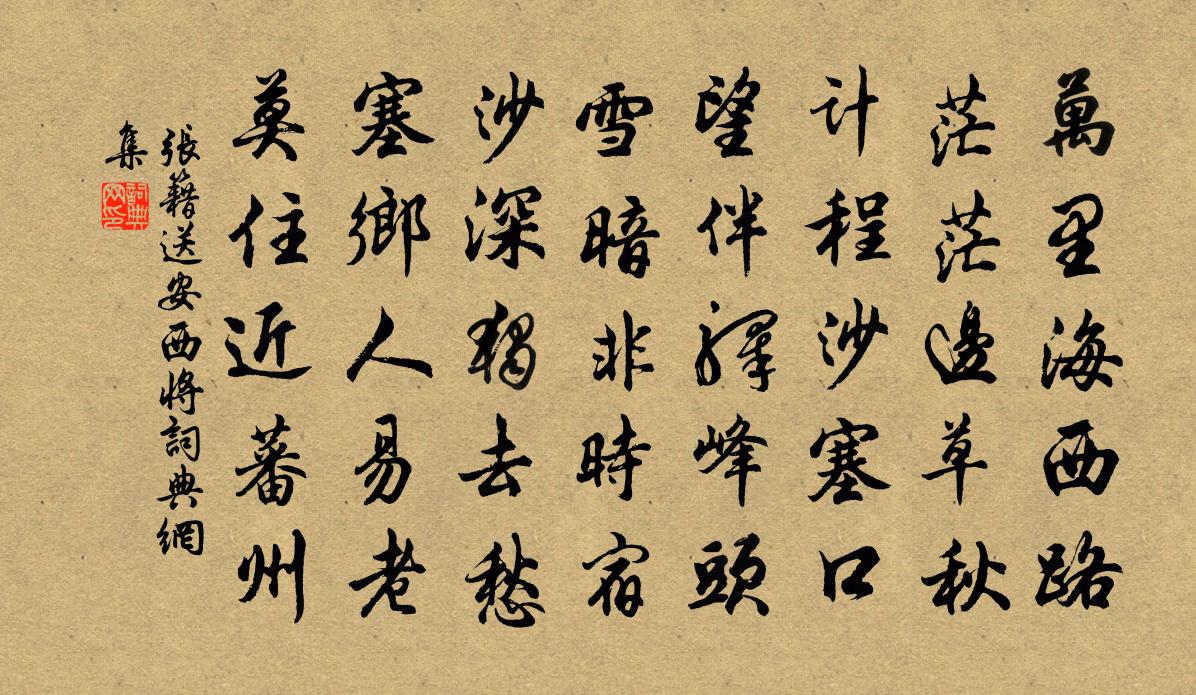 萬里海西路
茫茫邊草秋
計程沙塞口
望伴驛峰頭
雪暗非時宿
沙深獨去愁
塞鄉人易老
莫住近蕃州
張籍送安西將詞典網
集
詞典
网印